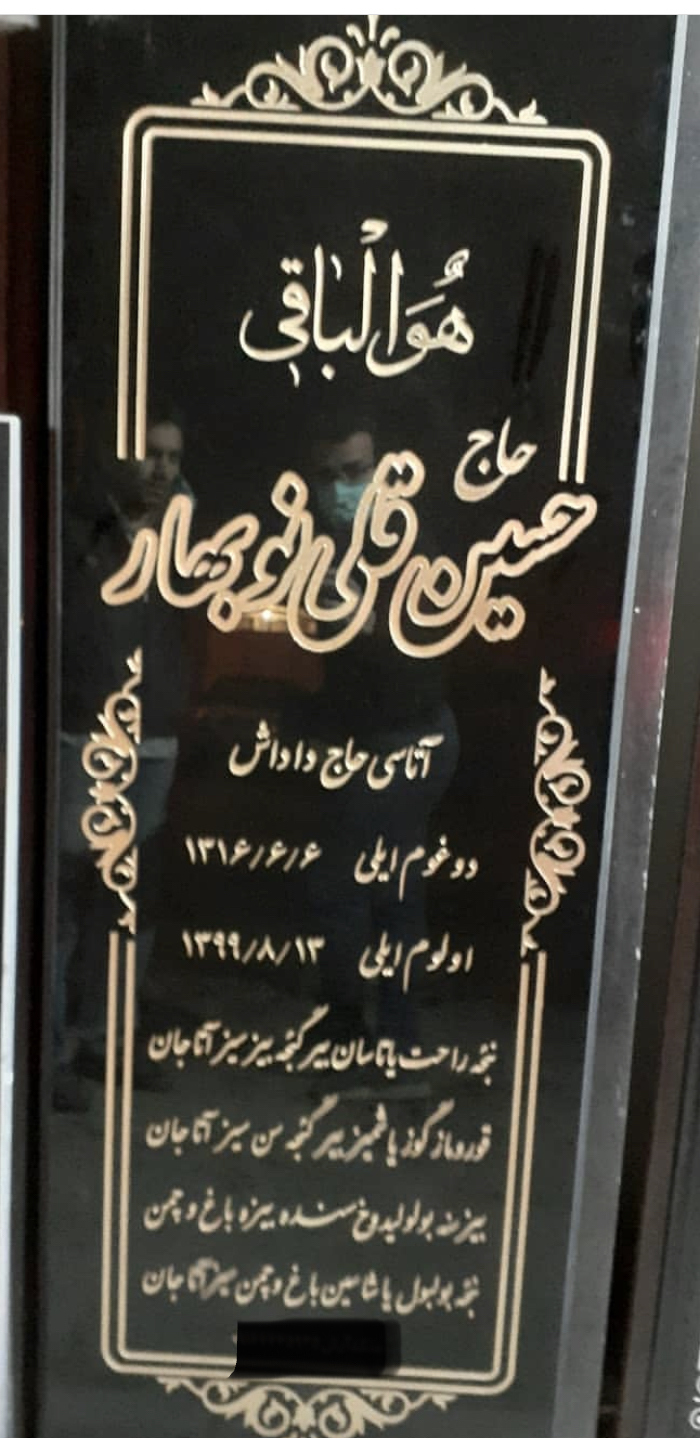 هُوَالْباقی
حاج
حسین قلی نوبهار
آتاسی حاج داداش
دوغوم ایلی ۱۳۱۶/۶/۶
اولوم ایلی ۱۳۹۹/۸/۱۳
نجه راحت یاتاسان بیر گئجه بیز سیز آتا جان
قوروماز گوز یاشمیز بیر گئجه سن سیز آتا جان
بیز نه بولبولیدوخ سنده بیزه باغ و چمن
نجه بولبول یاشاسین باغ و چمن سیز آتا جان